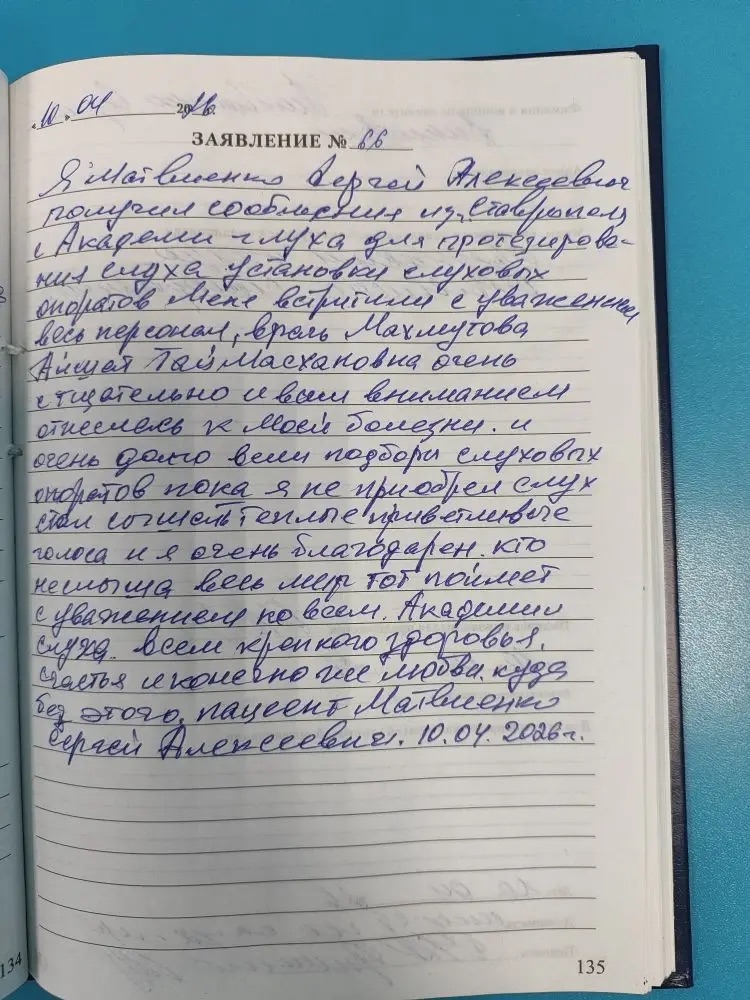 „10" 04 2026
ЗАЯВЛЕНИЕ № 66
Я Матвиенко Сергей Алексеевич
получил сообщения из Ставрополя
с Академии глуха для протезирова-
ния слуха установки слуховых
опоратов Меня встритили с уважением
весь персонал, врачь Махмутова
Айшат Таймасхановна очень
стщательно и вsem вниманием
отнеслась к моей болезни. и
очень долго вели подбори слуховых
опоратов пока я не приобрел слух
стал слышеть теплые приветливые
голоса и я очень благодарен. кто
неслыша весь мир тот поймет
с уважением ко всем. Академии
слуха. всем крепкого здоровья,
счастья и конечно же любви. куда
без этого. пациент Матвиенко
Сергей Алексеевич. 10.04.2026г.
134
135